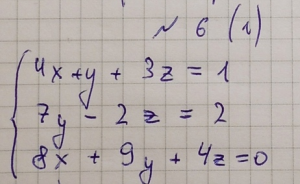 № 6 (1)
4x + y + 3z = 1
7y - 2z = 2
8x + 9y + 4z = 0